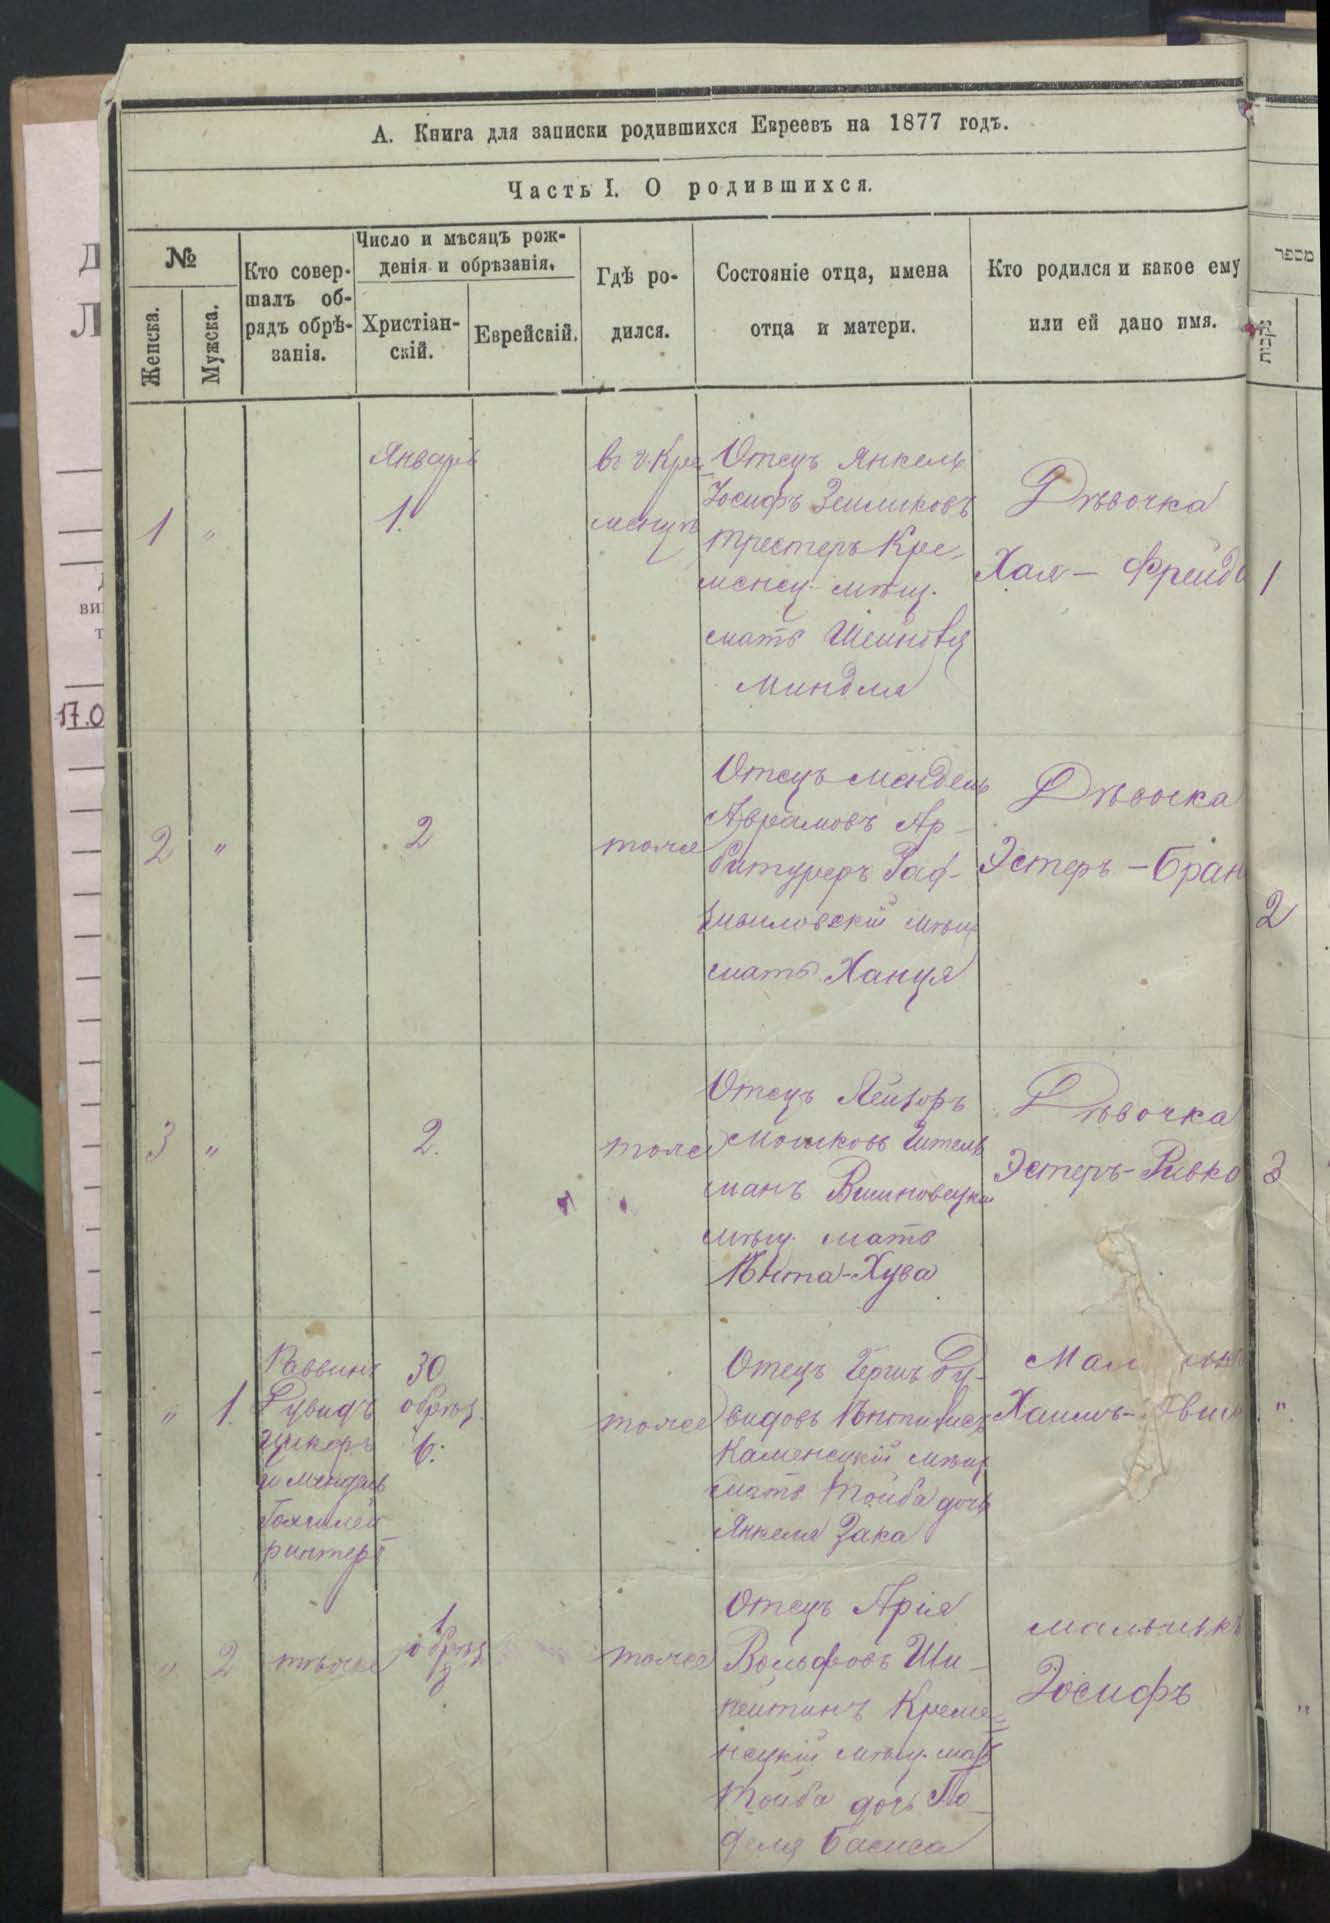 А. Книга для записки родившихся Евреевъ на 1877 годъ.
Часть I. О родившихся.
№
Женска.
Мужска.
Кто совер-
шалъ об-
рядъ обрѣ-
занія.
Число и мѣсяцъ рож-
денія и обрѣзанія.
Христіан-
скій.
Еврейскій.
Гдѣ ро-
дился.
Состояніе отца, имена
отца и матери.
Кто родился и какое ему
или ей дано имя.
מספר
נקבות
1
"
Январь
1.
въ г. Кре-
менцѣ
Отецъ Янкель
Іосифъ Зелмиковъ
Трестеръ Кре-
менец. мѣщ.
мать
Миндля
Дѣвочка
Хая - Фрейда
1
2
"
2
тоже
Отецъ Мендель
Аврамовъ Ар-
битуреръ Рад-
зивиловскій мѣщ
мать Ханця
Дѣвочка
Эстеръ - Бран
2
3
"
2.
тоже
Отецъ Лейзоръ
Мошковъ Штель
манъ Вишновецкій
мѣщ. мать
Ента-Хува
Дѣвочка
Эстеръ-Ривка
3
"
1.
Раввинъ
Дувидъ
Цукеръ
и
30
обрѣз.
6.
тоже
Отецъ Гершъ Ду-
видовъ
Каменецкій мѣщ
мать Тойба дочь
Янкеля Зака
Хаимъ-
"
"
2
тѣже
1
обрѣз.
тоже
Отецъ Арія
Вольфовъ Ши-
Креме-
нецкій мѣщ. мать
Тойба дочь
Басиса
мальчикъ
Іосифъ
"
17.0